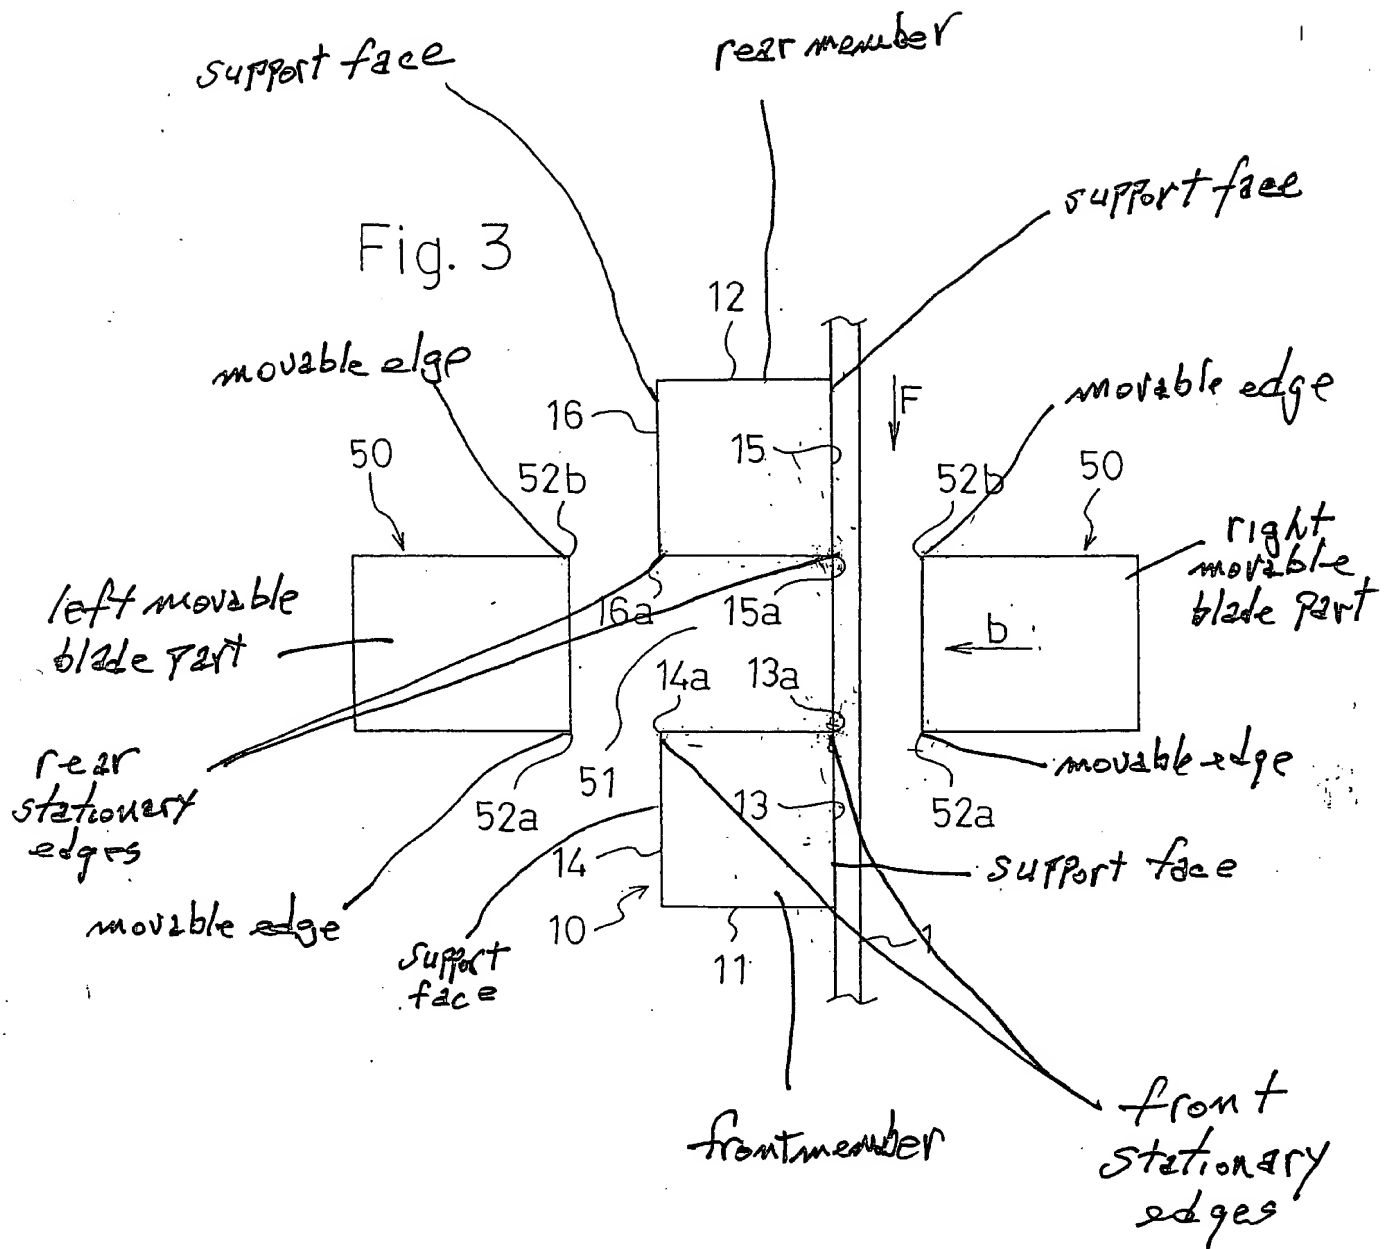 support face
rear member
support face
Fig. 3
12
movable elge
movable edge
F
16
15
50
52b
52b
50
right
movable
blade part
left movable
blade part
16a
15a
b
14a
13a
rear
stationary
edges
51
movable edge
52a
13
52a
14
support face
movable edge
10
1
support
face
11
front member
front
stationary
edges